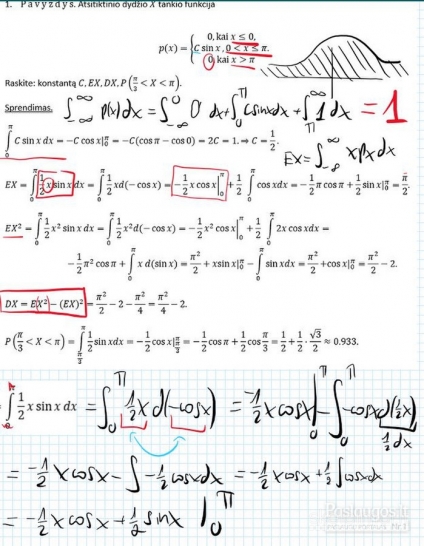 1. Pavyzdys. Atsitiktinio dydžio X tankio funkcija
0, kai x ≤ 0,
p(x) = { C sin x , 0 < x ≤ π.
0, kai x > π
Raskite: konstantą C, EX, DX, P(π/3 < X < π).
Sprendimas. ∫_{-∞}^{∞} p(x)dx = ∫_{-∞}^{0} 0 dx + ∫_0^π C sinx dx + ∫_π^∞ 1 dx = 1
∫_0^π C sin x dx = −C cos x|_0^π = −C(cos π − cos 0) = 2C = 1. ⇒ C = 1/2.
EX = ∫_{-∞}^{∞} x p x dx
EX = ∫_0^π 1/2 x sin x dx = ∫_0^π 1/2 x d(− cos x) = −1/2 x cos x|_0^π + 1/2 ∫_0^π cos x dx = −1/2 π cos π + 1/2 sin x|_0^π = π/2.
EX² = ∫_0^π 1/2 x² sin x dx = ∫_0^π 1/2 x² d(− cos x) = −1/2 x² cos x|_0^π + 1/2 ∫_0^π 2x cos x dx =
−1/2 π² cos π + ∫_0^π x d(sin x) = π²/2 + x sin x|_0^π − ∫_0^π sin x dx = π²/2 + cos x|_0^π = π²/2 − 2.
DX = EX² − (EX)² = π²/2 − 2 − π²/4 = π²/4 − 2.
P(π/3 < X < π) = ∫_{π/3}^π 1/2 sin x dx = −1/2 cos x|_{π/3}^π = −1/2 cos π + 1/2 cos π/3 = 1/2 + 1/2 · √3/2 ≈ 0.933.
∫_0^π 1/2 x sin x dx = ∫_0^π 1/2 x d(−cosx) = −1/2 x cosx |_0^π − ∫_0^π −cosx d(1/2 x)
1/2 dx
= −1/2 x cosx − ∫ −1/2 cosx dx = −1/2 x cosx + 1/2 ∫ cosx dx
= −1/2 x cosx + 1/2 sinx |_0^π